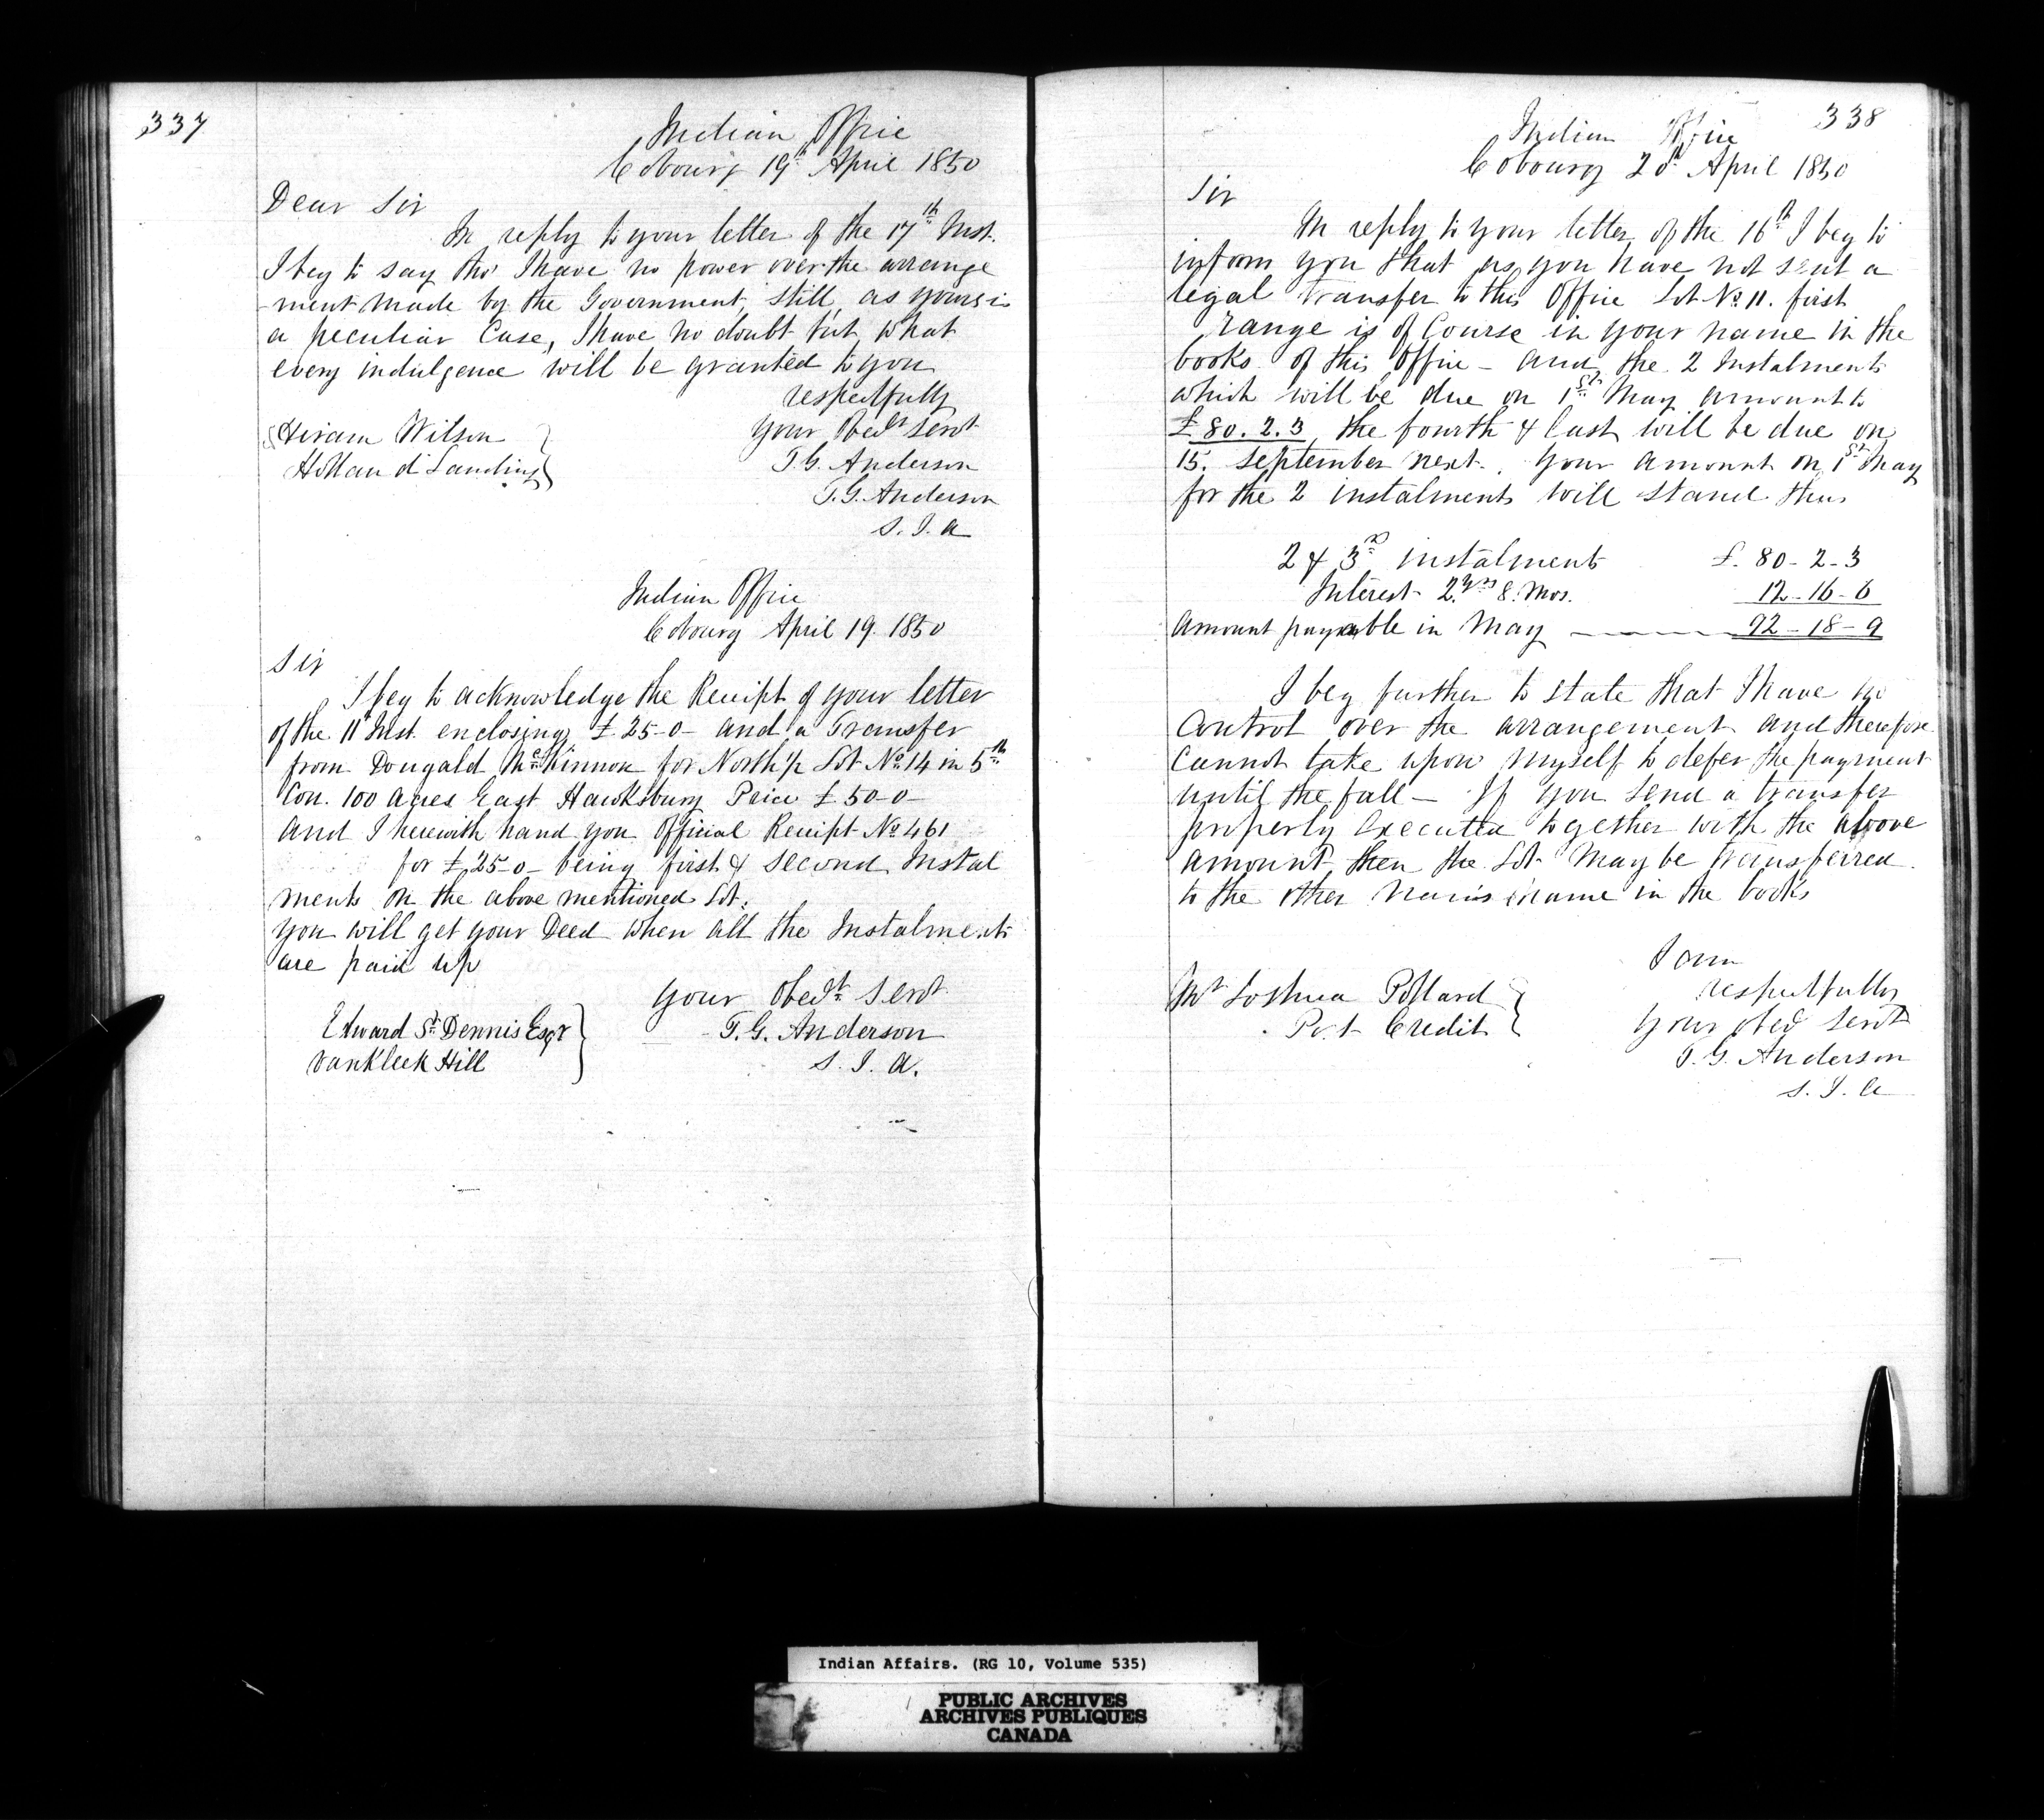 337
Indian Office
Cobourg 19th April 1850
Dear Sir
In reply to your letter of the 17th Inst.
I beg to say tho' I have no power over the arrange
-ment made by the Government, still, as yours is
a peculiar Case, I have no doubt but what
every indulgence will be granted to you
respectfully
Your Obedt Servt
T.G. Anderson
T.G. Anderson
S. I. A
Hiram Wilson
Holland Landing
Indian Office
Cobourg April 19. 1850
Sir
I beg to acknowledge the Receipt of your letter
of the 11th Inst. enclosing £25-0- and a Transfer
from Dougald McKinnon for North ½ Lot No 14 in 5th
Con. 100 Acres East Hawksbury Price £50-0-
And I herewith hand you Official Receipt No 461
for £25-0- being first & second Instal
ments on the above mentioned Lot.
You will get your Deed when all the Instalments
are paid up
Your Obedt Servt
T.G. Anderson
S. I. A.
Edward St Dennis Esqr
Vankleek Hill
338
Indian Office
Cobourg 20th April 1850
Sir
In reply to your letter of the 16th I beg to
inform you that as you have not sent a
legal transfer to this Office Lot No 11. first
range is of Course in your name in the
books of this Office - and the 2 Instalments
which will be due on 1st May amount to
£80.2.3 the fourth & last will be due on
15. September next. Your amount on 1st May
for the 2 instalments will stand thus
2 & 3rd instalments £. 80-2-3
Interest 2 yrs 8. Mos. 12-16-6
Amount payable in May 92-18-9
I beg further to state that I have no
Control over the arrangement and therefore
Cannot take upon myself to defer the payment
until the fall - If you send a transfer
properly executed together with the above
amount, then the Lot may be transferred
to the other man's name in the books
I am
respectfully
Your obedt Servt
T.G. Anderson
S. I. A
Mr Joshua Pollard
Port Credit
Indian Affairs. (RG 10, Volume 535)
PUBLIC ARCHIVES
ARCHIVES PUBLIQUES
CANADA